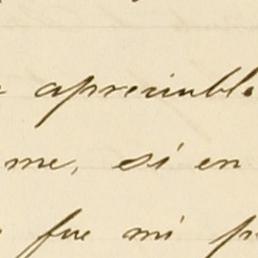 apreciable
me, si en
fue mi